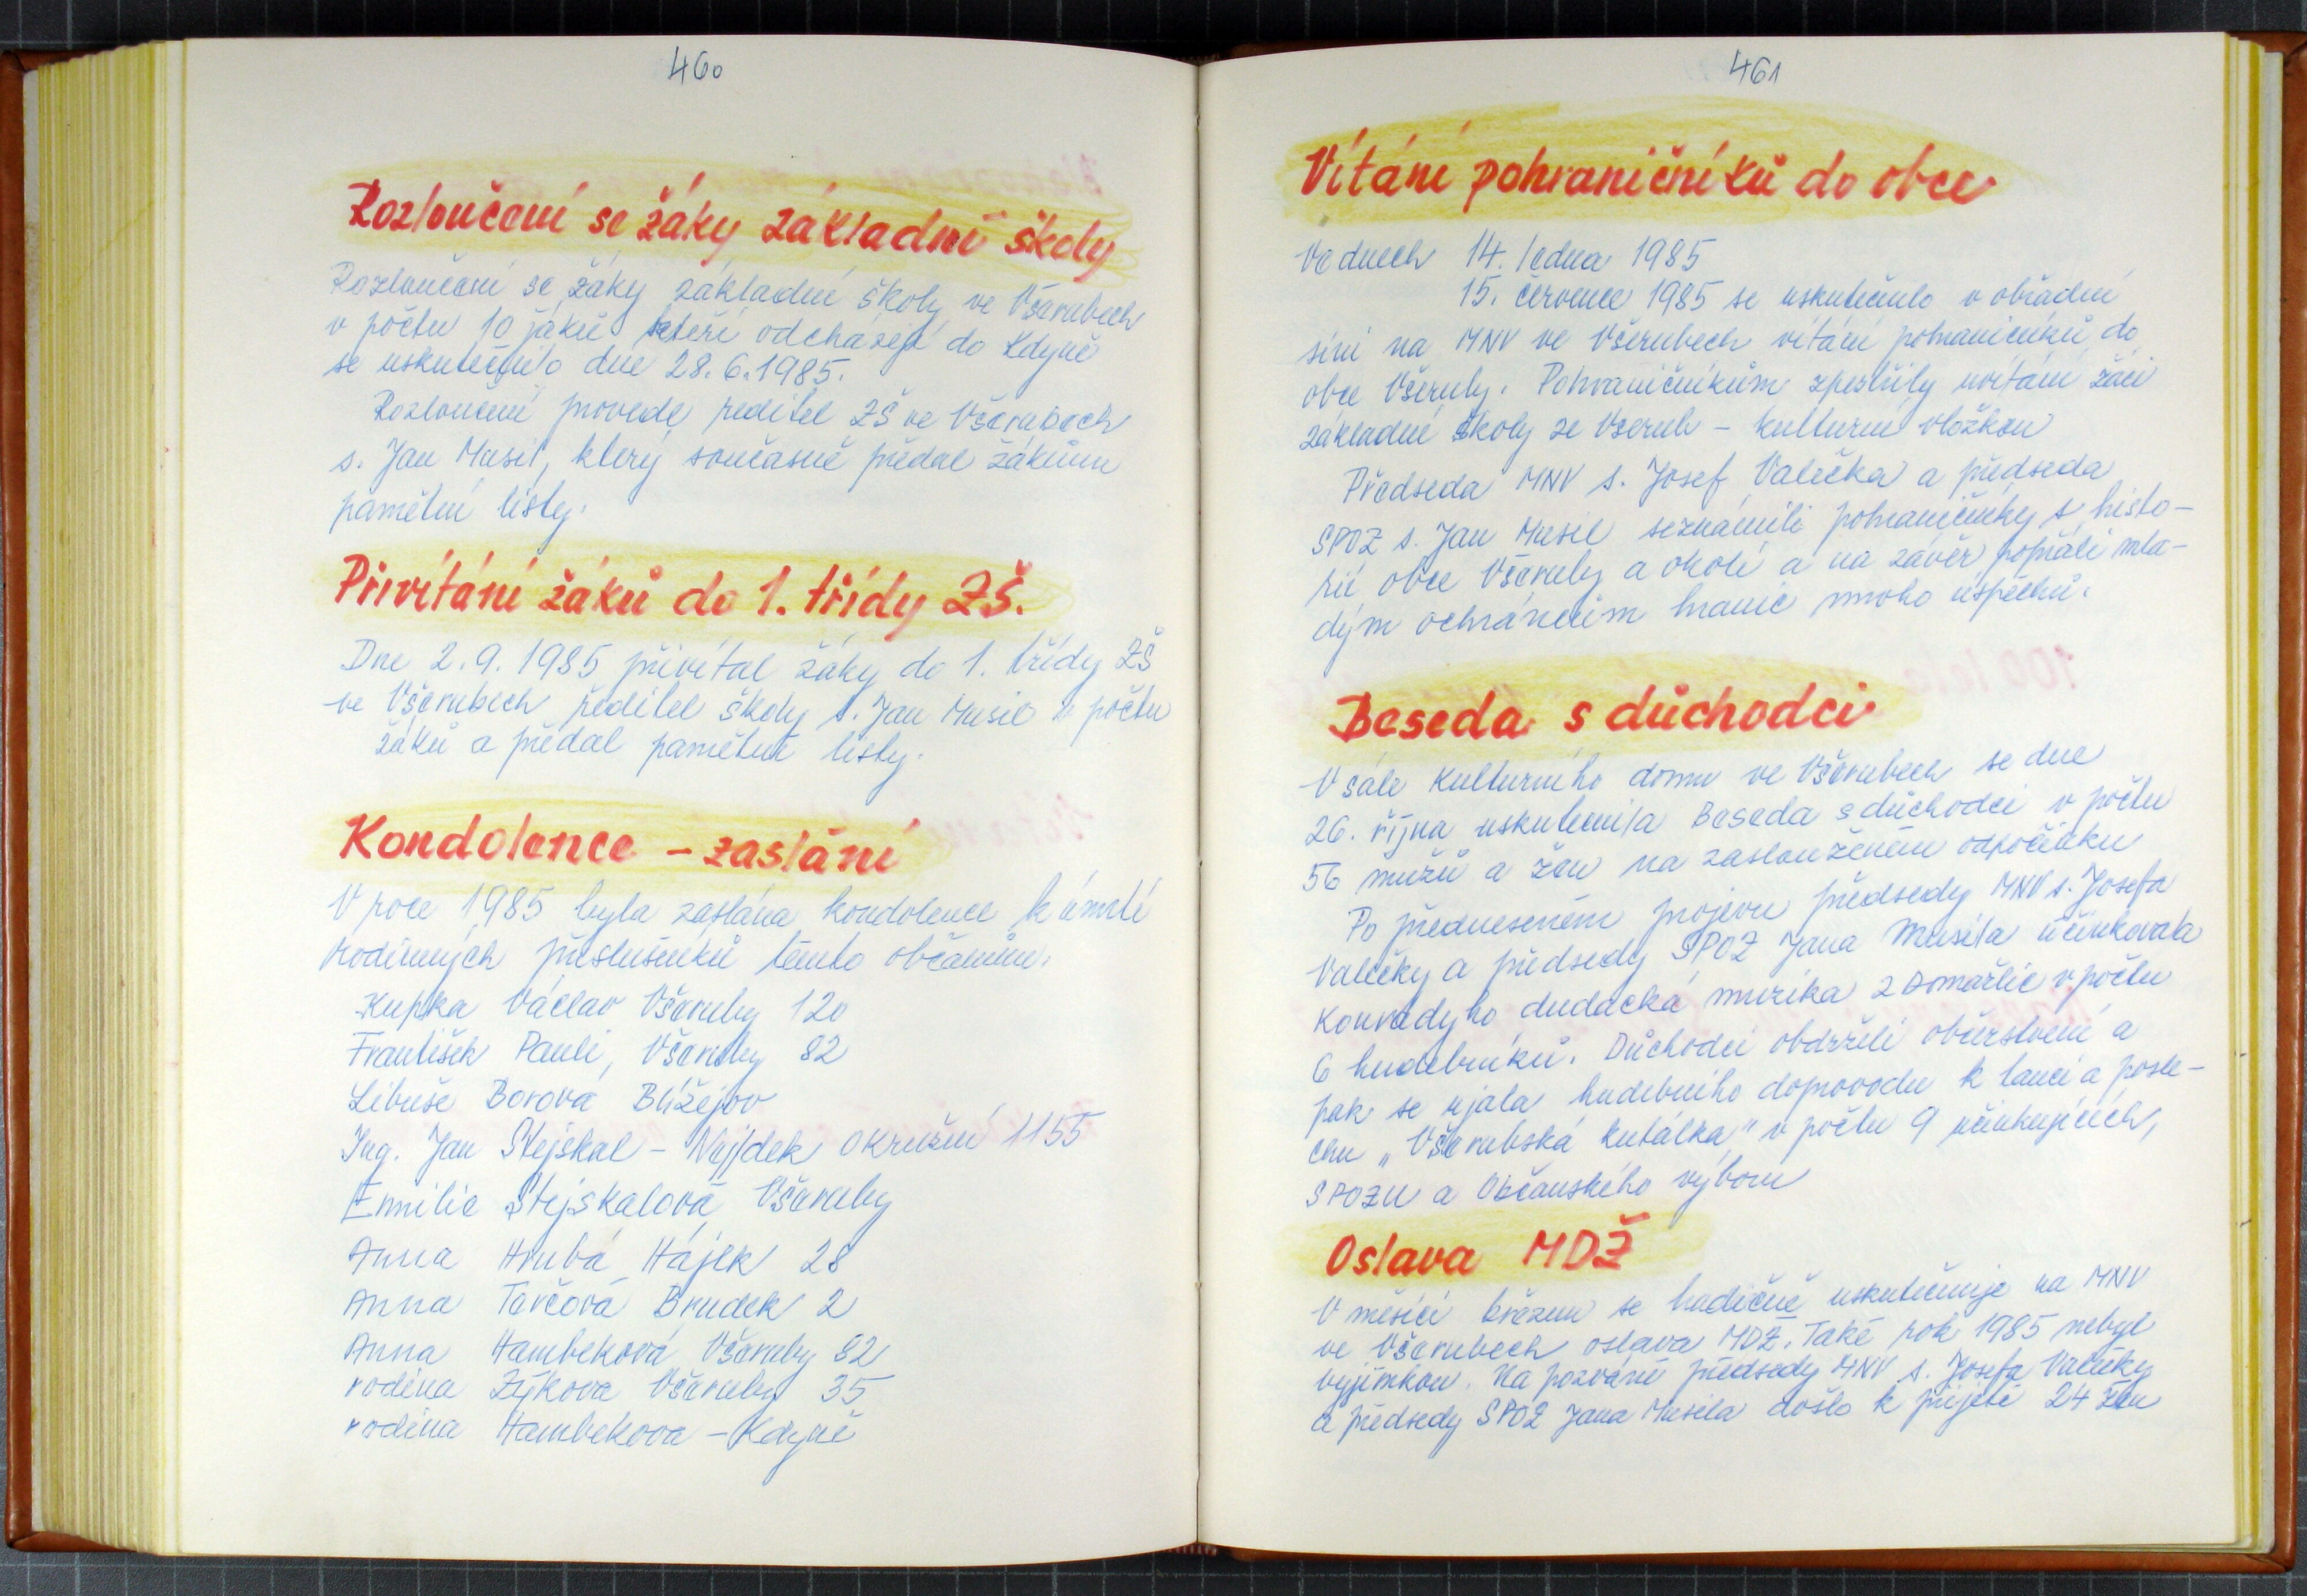 460
Rozloučení se žáky základní školy
Rozloučení se žáky základní školy ve Všerubech
v počtu 10 žáků kteří odcházejí do Kdyně
se uskutečnilo dne 28.6.1985.
Rozloučení provede ředitel ZŠ ve Všerubech
s. Jan Musil, který současně předal žákům
pamětní listy.
Přivítání žáků do 1. třídy ZŠ.
Dne 2.9.1985 přivítal žáky do 1. třídy ZŠ
ve Všerubech ředitel školy s. Jan Musil v počtu
žáků a předal pamětní listy.
Kondolence - zaslání
V roce 1985 byla zaslána kondolence k úmrtí
rodinných příslušníků těmto občanům.
Kupka Václav Všeruby 120
František Pauli, Všeruby 82
Libuše Borová Blížejov
Ing. Jan Stejskal - Nejdek Okružní 1155
Emilie Stejskalová Všeruby
Anna Hrubá Hájek 28
Anna Tarčová Brudek 2
Anna Hambeková Všeruby 82
rodina Zýkova Všeruby 35
rodina Hambekova - Kdyně
461
Vítání pohraničníků do obce
Ve dnech 14. ledna 1985
15. července 1985 se uskutečnilo v obřadní
síni na MNV ve Všerubech vítání pohraničníků do
obce Všeruby. Pohraničníkům zpestřily uvítání žáci
základní školy ze Všerub - kulturní vložkou
Předseda MNV s. Josef Valečka a předseda
SPOZ s. Jan Musil seznámili pohraničníky s histo-
rií obce Všeruby a okolí a na závěr popřáli mla-
dým ochráncům hranic mnoho úspěchů.
Beseda s důchodci
V sále Kulturního domu ve Všerubech se dne
26. října uskutečnila Beseda s důchodci v počtu
56 mužů a žen na zaslouženém odpočinku
Po předneseném projevu předsedy MNV s. Josefa
Valečky a předsedy SPOZ Jana Musila účinkovala
Konrádyho dudácká muzika z Domažlic v počtu
6 hudebníků. Důchodci obdrželi občerstvení a
pak se ujala hudebního doprovodu k tanci a posle-
chu "Všerubská kutálka" v počtu 9 účinkujících,
SPOZu a Občanského výboru
Oslava MDŽ
V měsíci březnu se každičně uskutečnuje na MNV
ve Všerubech oslava MDŽ. Také rok 1985 nebyl
vyjímkou. Na pozvání předsedy MNV s. Josefa Valečky
a předsedy SPOZ Jana Musila došlo k přijetí 24 žen